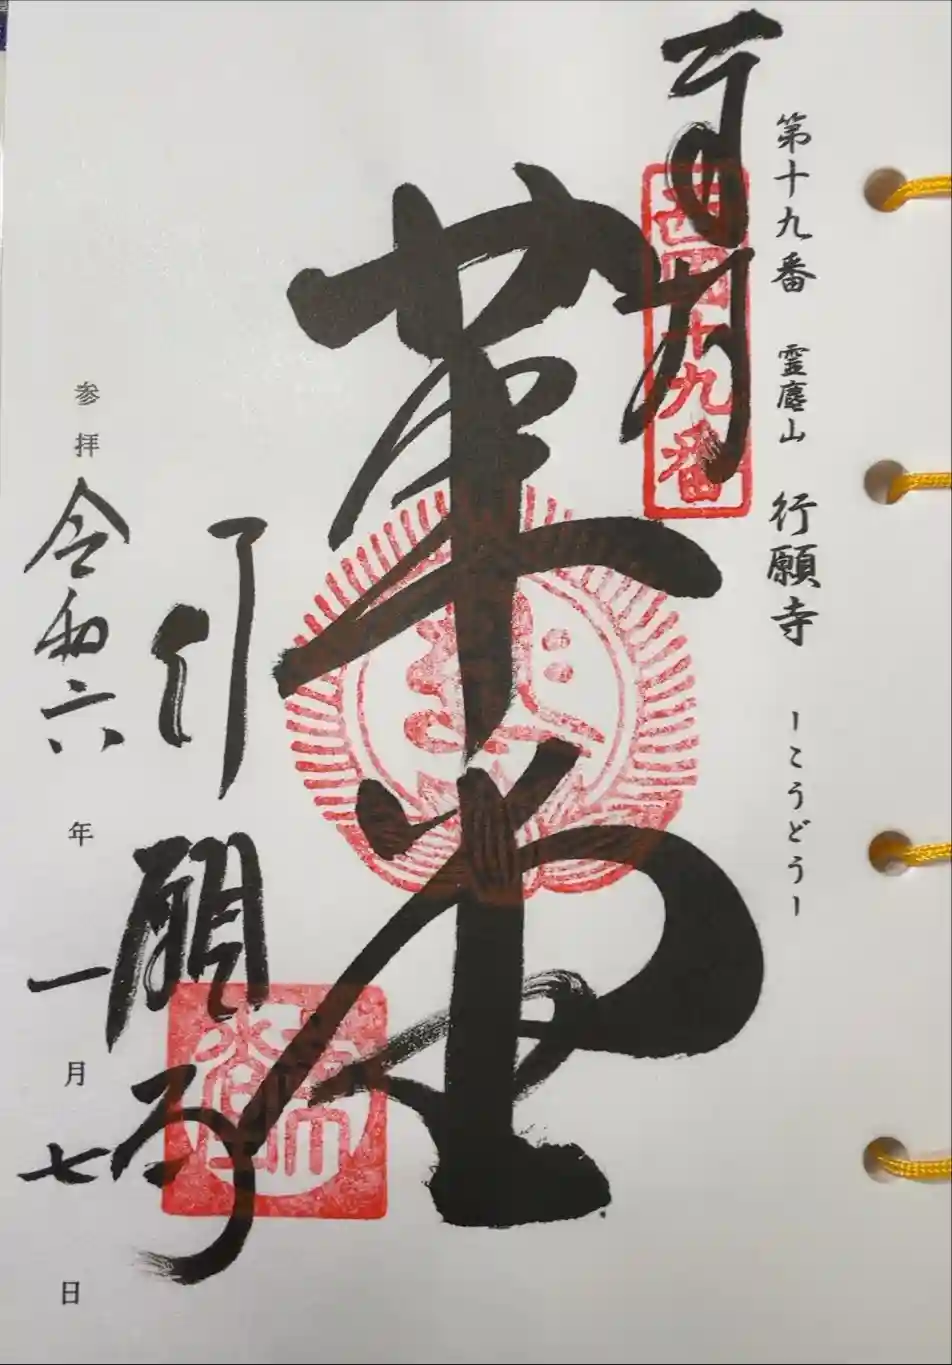 第十九番 霊麀山 行願寺 ーこうどうー
西国十九番
革堂
行願寺
参拝 令和六年一月七日